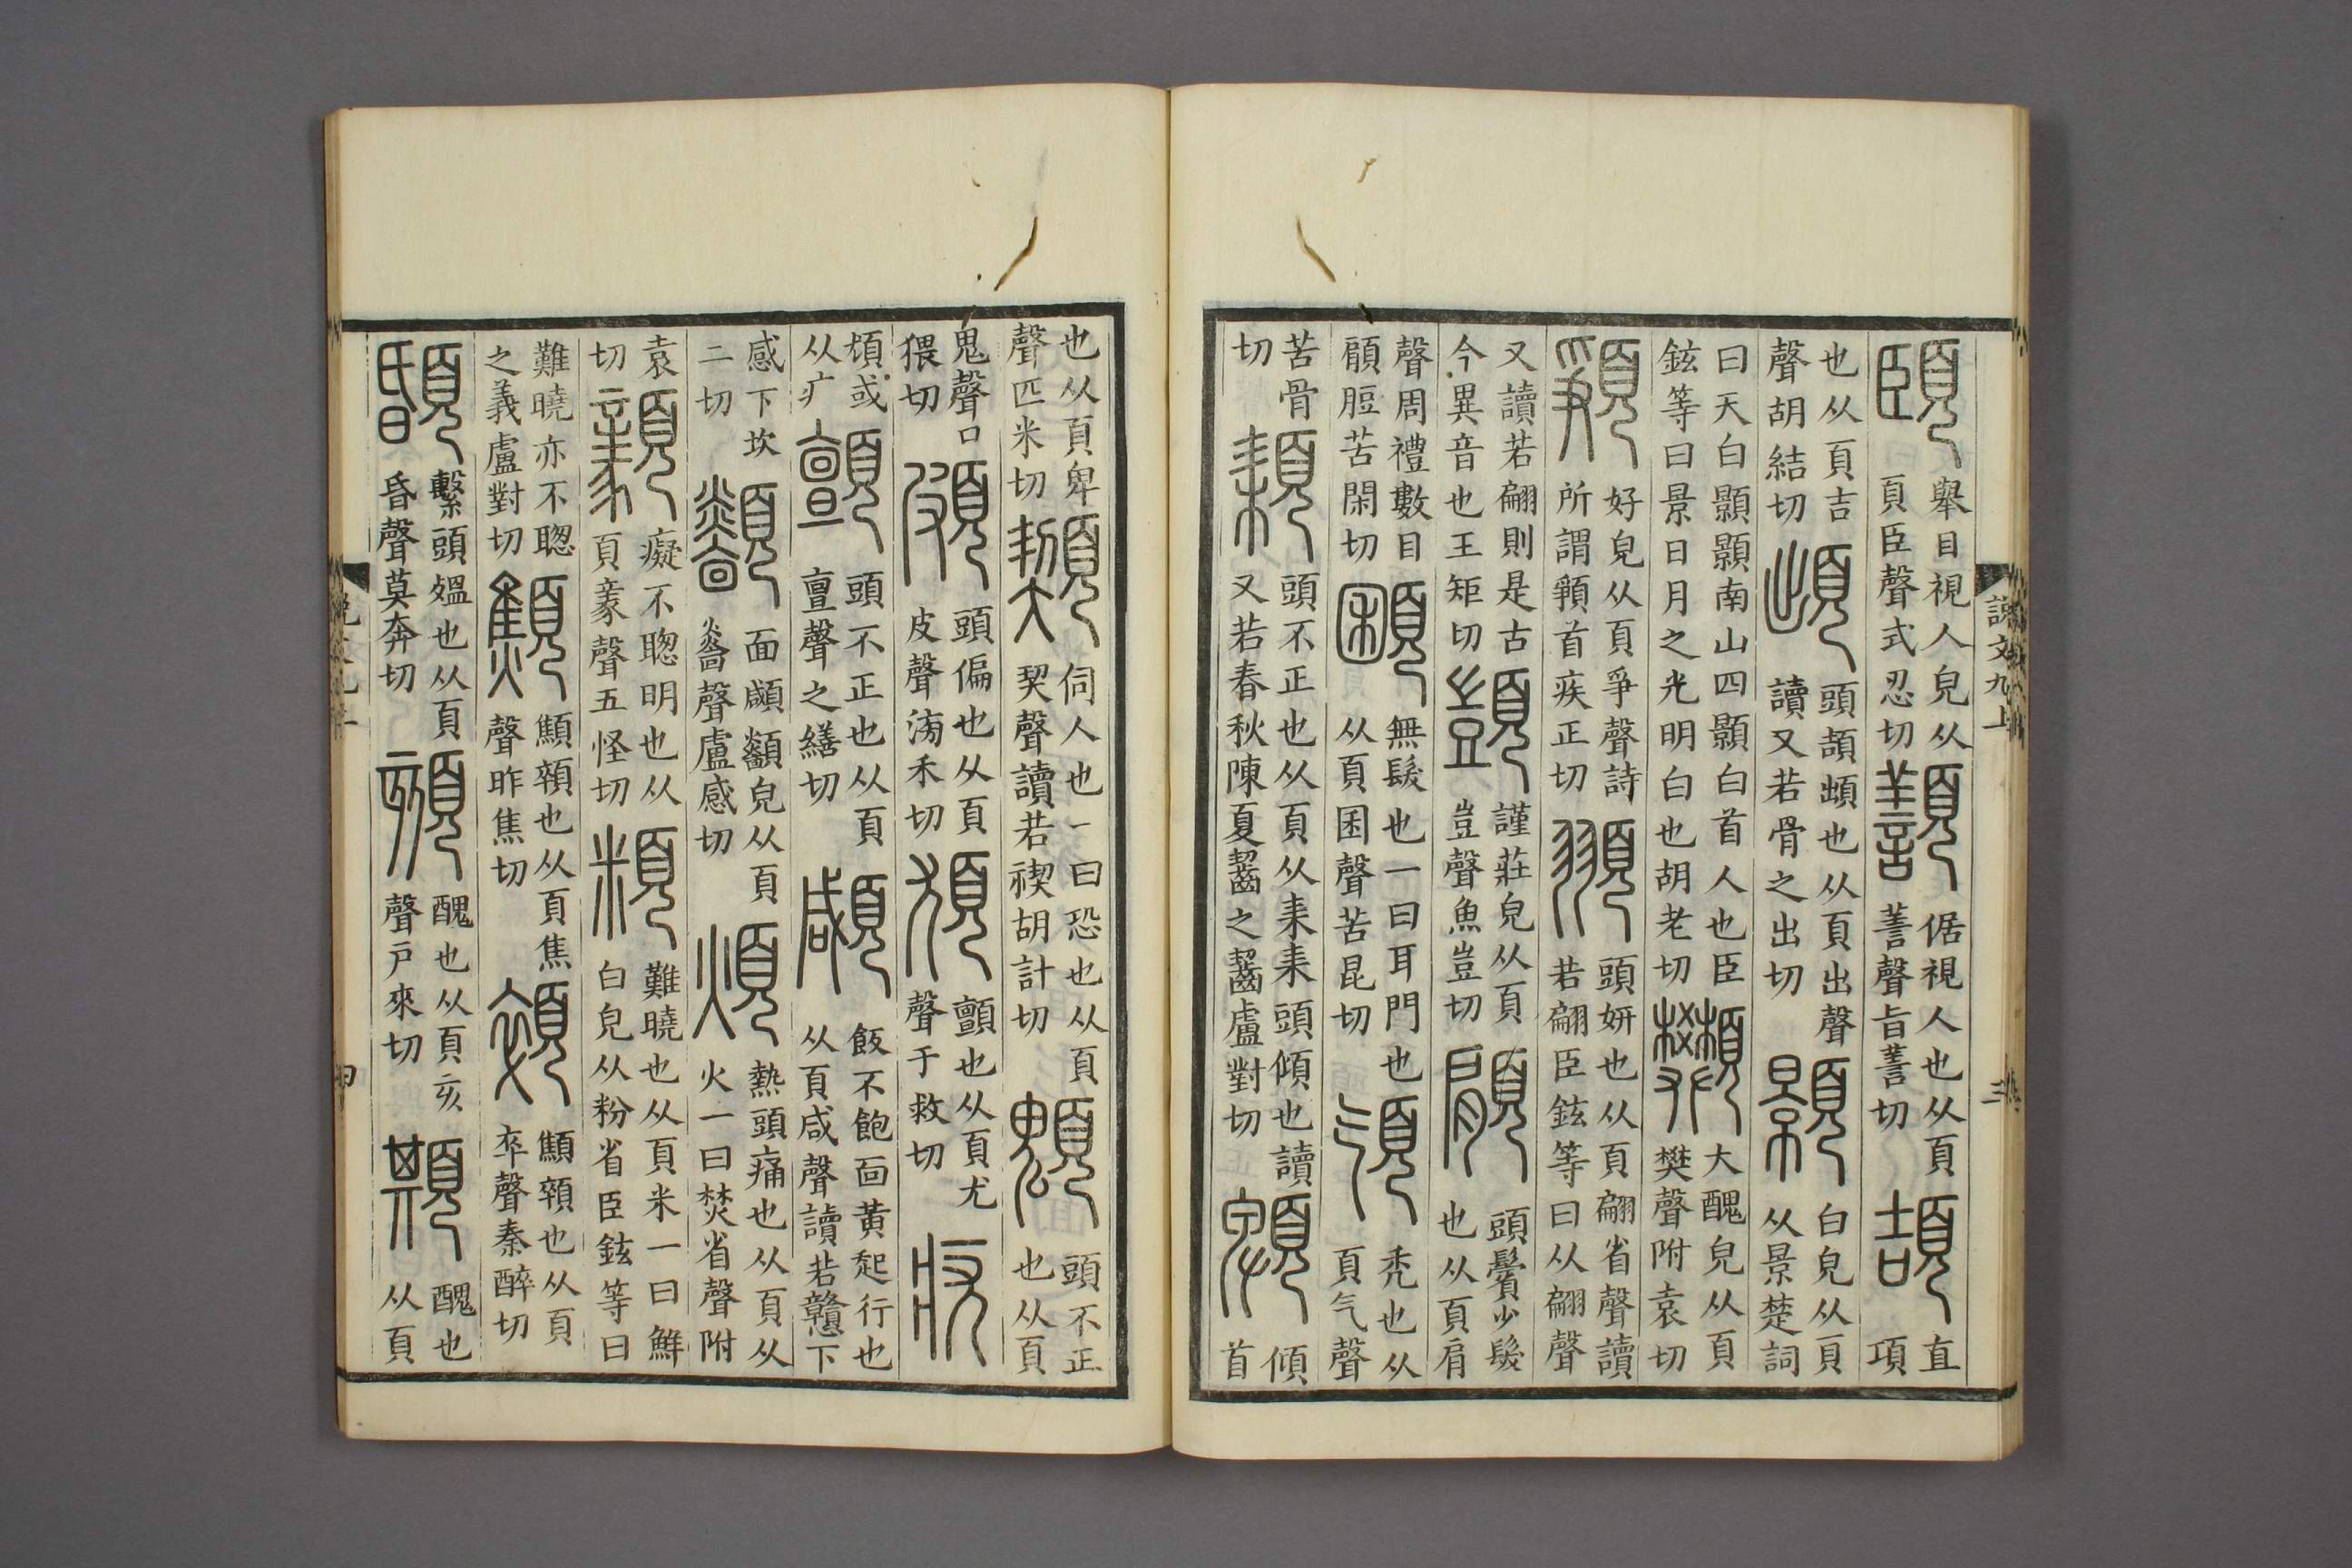 頣舉目視人皃从頁臣聲式忍切 倨視人也从頁善聲旨善切頡直項
也从頁吉聲胡結切䪼頭頡䪼也从頁出聲讀又若骨之出切顥白皃从頁从景楚詞
曰天白顥顥南山四顥白首人也臣鉉等曰景日月之光明白也胡老切䫶大醜皃从頁樊聲附袁切
䫆好皃从頁爭聲詩所謂䫆首疾正切頨頭妍也从頁翩省聲讀若翩臣鉉等曰从翩聲
又讀若翩則是古今異音也王矩切顗謹莊皃从頁豈聲魚豈切顅頭鬢少髮也从頁肩
聲周禮數目顅脰苦閑切 無髮也一曰耳門也从頁囷聲苦昆切 秃也从頁气聲
苦骨切頛頭不正也从頁从耒耒頭傾也讀又若春秋陳夏齧之齧盧對切䫌傾首
說文九上
三
也从頁卑聲匹米切䫔伺人也一曰恐也从頁契聲讀若禊胡計切䫥頭不正也从頁
鬼聲口猥切頗頭偏也从頁皮聲滂禾切䪲顫也从頁尤聲于救切疢
䪲或从疒顫頭不正也从頁亶聲之繕切顑飯不飽面黃起行也从頁咸聲讀若戇下
感下坎二切顲面顑顲皃从頁𤐫聲盧感切煩熱頭痛也从頁从火一曰焚省聲附
袁切顡癡不聦明也从頁豙聲五怪切頪難曉也从頁米一曰鮮白皃从粉省臣鉉等曰
難曉亦不聦之義盧對切顦顦顇也从頁焦聲昨焦切顇顦顇也从頁卒聲秦醉切
繫頭殟也从頁昏聲莫奔切頦醜也从頁亥聲戶來切䫏醜也从頁
四